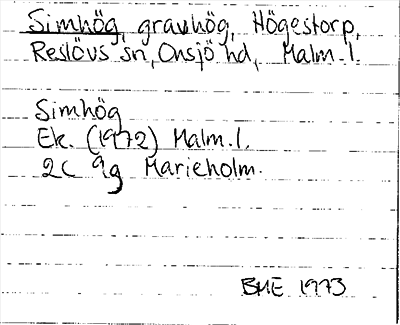 Simhög, gravhög, Högestorp,
Reslövs sn, Onsjö hd, Malm. l.
Simhög
Ek. (1972) Malm. l.
2C 9g Marieholm.
BHE 1973